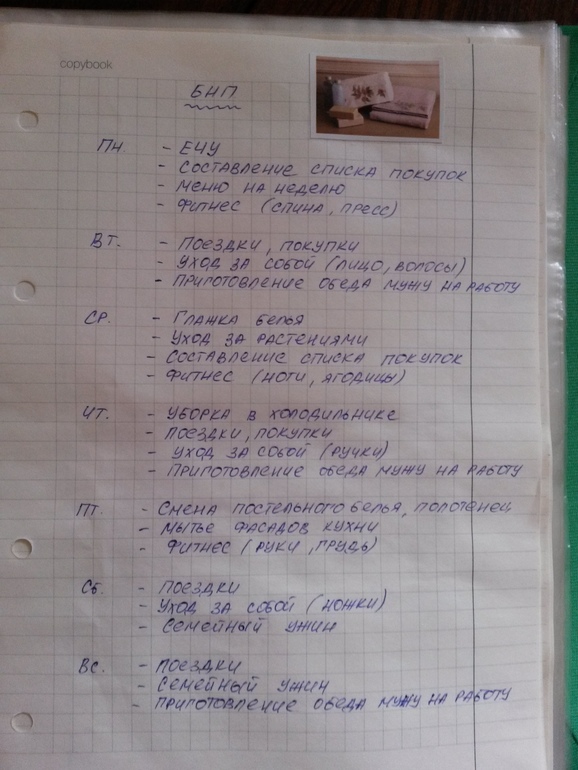 copybook
БНП
Пн. - ЕЧУ
- Составление списка покупок
- Меню на неделю
- Фитнес (спина, пресс)
Вт. - Поездки, покупки
- Уход за собой (лицо, волосы)
- Приготовление обеда мужу на работу
Ср. - Глажка белья
- Уход за растениями
- Составление списка покупок
- Фитнес (ноги, ягодицы)
Чт. - Уборка в холодильнике
- Поездки, покупки
- Уход за собой (ручки)
- Приготовление обеда мужу на работу
Пт. - Смена постельного белья, полотенец
- Мытье фасадов кухни
- Фитнес (руки, грудь)
Сб. - Поездки
- Уход за собой (ножки)
- Семейный ужин
Вс. - Поездки
- Семейный ужин
- Приготовление обеда мужу на работу